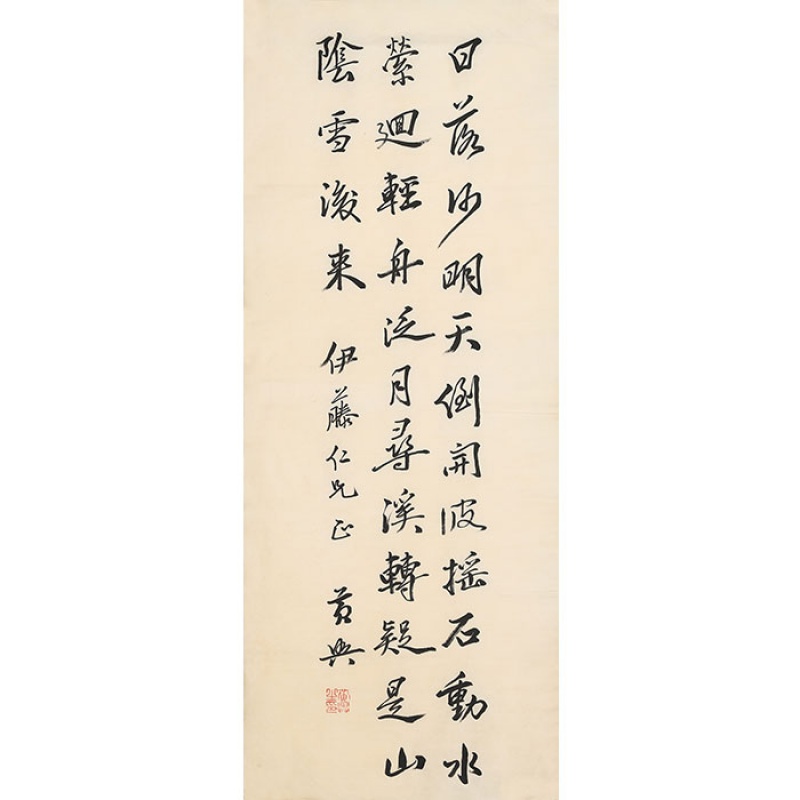 日落沙明天倒開波揺石動水
縈廻輕舟泛月尋溪轉疑是山
陰雪後来 伊藤仁兄正 黄興